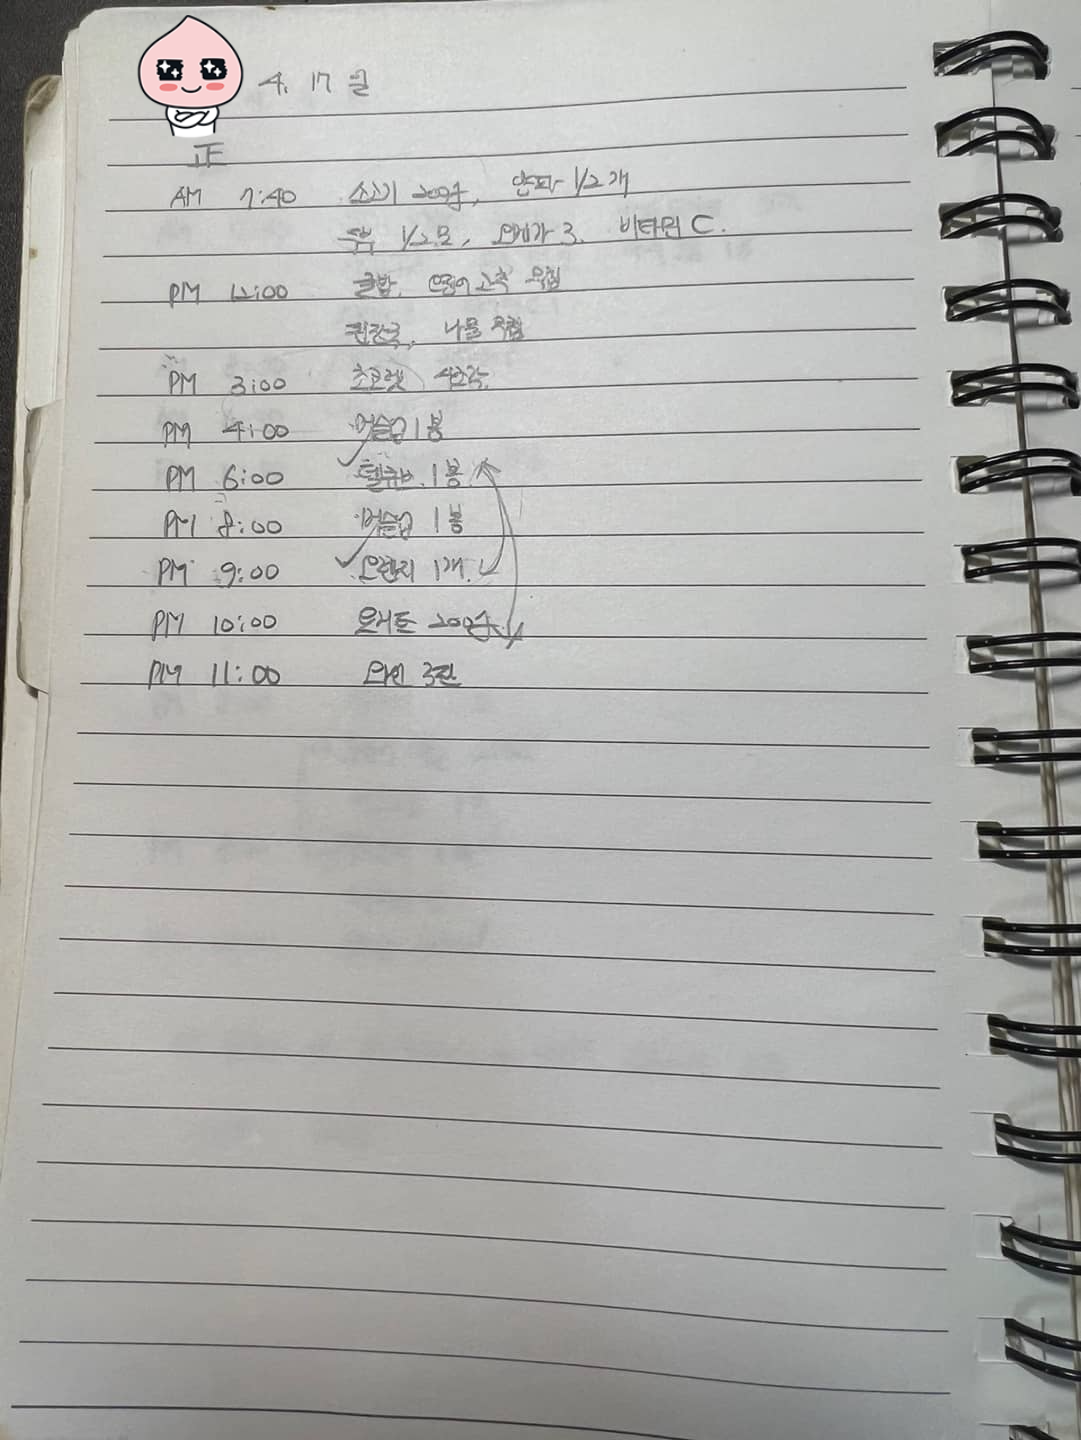 4. 17 금
正
AM 7:40 소고기 200g, 양파 1/2개
두부 1/2모, 오메가 3. 비타민 C.
PM 12:00 쌀밥, 무침
된장국, 나물 무침
PM 3:00 초코렛 4조각.
PM 4:00 머슬업 1봉
PM 6:00 1봉
PM 8:00 머슬업 1봉
PM 9:00 오렌지 1개.
PM 10:00 요거트 200g
PM 11:00 와인 3잔